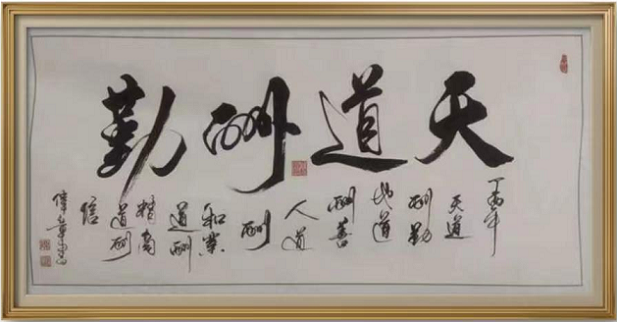 天道酬勤
天道
酬勤
地道
酬善
人道
酬
和業
道酬
精商
道酬
信